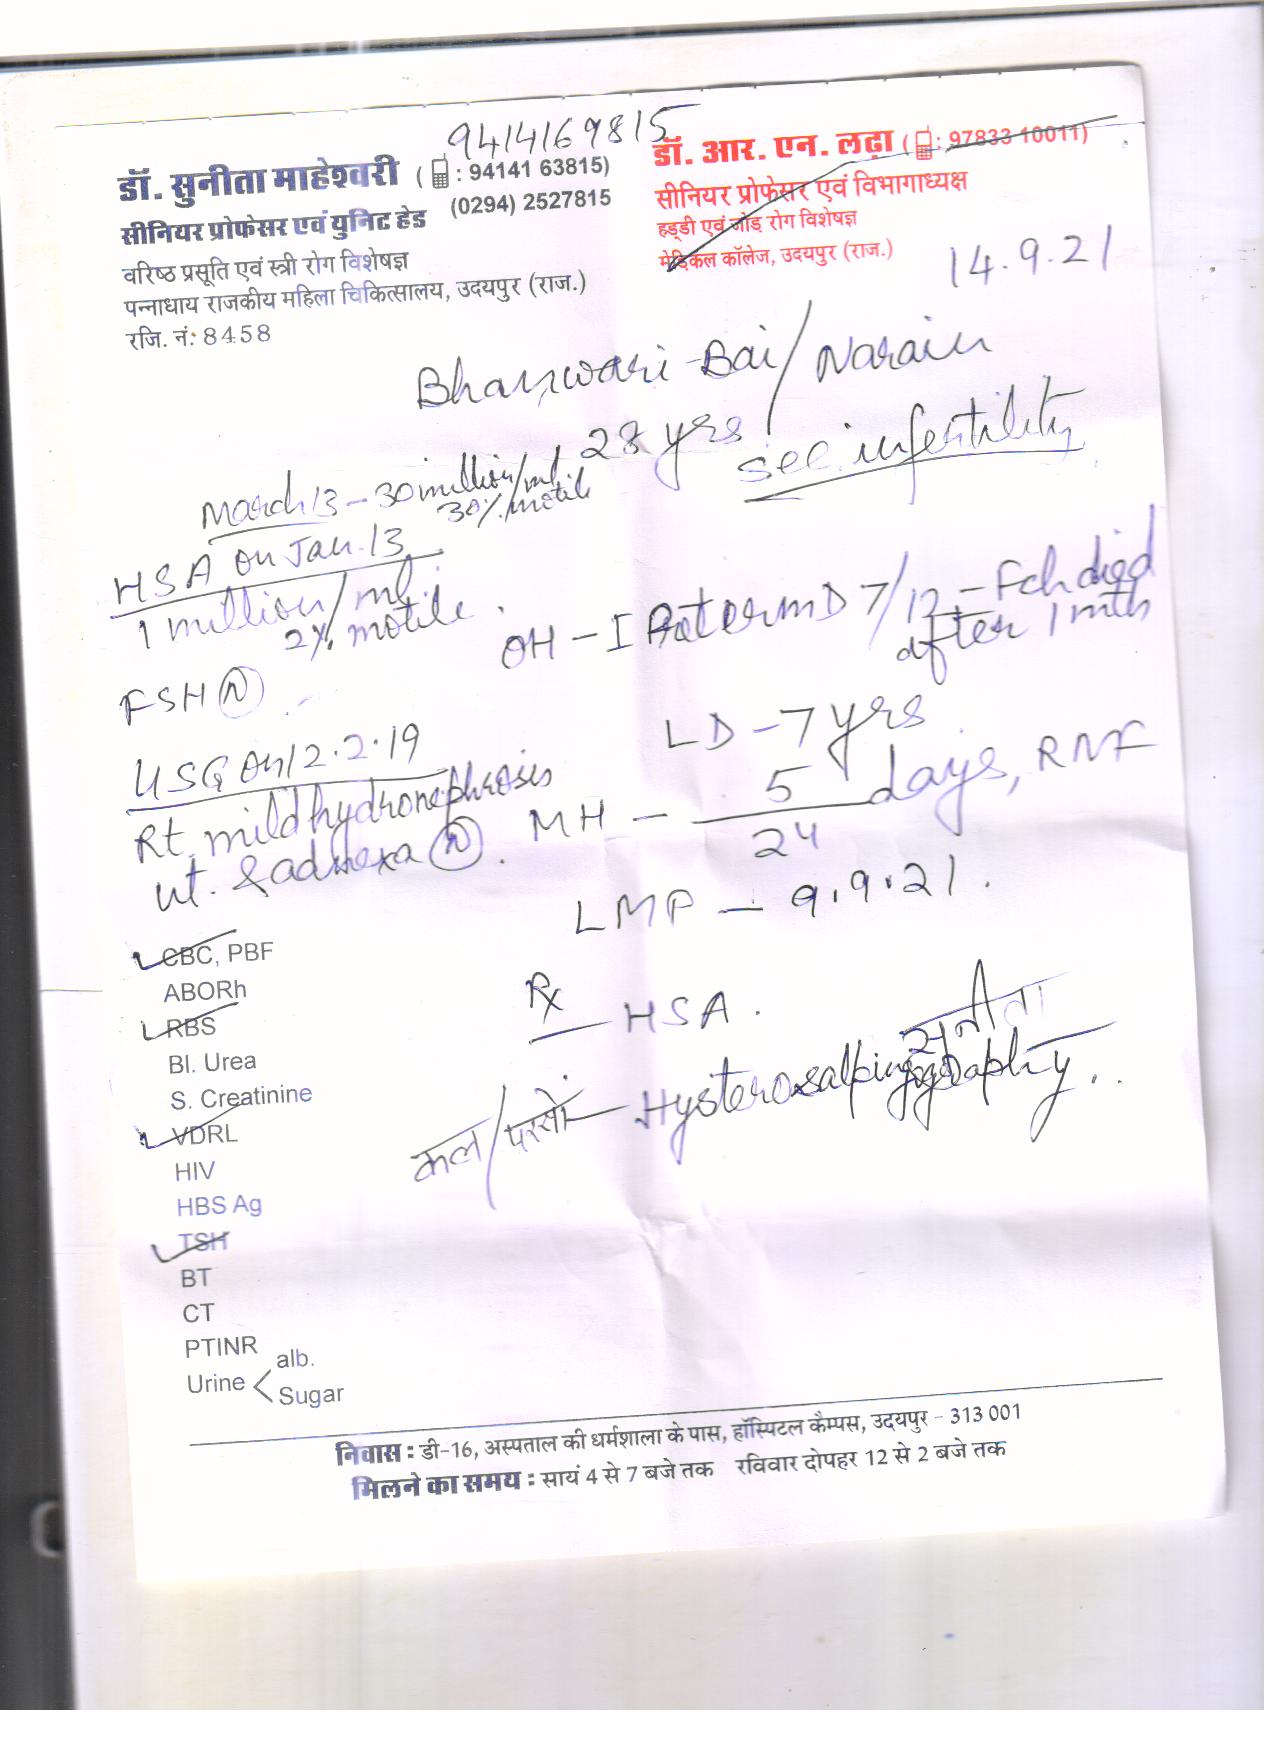 9414169815
डॉ. सुनीता माहेश्वरी ( : 94141 63815)
(0294) 2527815
सीनियर प्रोफेसर एवं युनिट हेड
वरिष्ठ प्रसूति एवं स्त्री रोग विशेषज्ञ
पन्नाधाय राजकीय महिला चिकित्सालय, उदयपुर (राज.)
रजि. नं.: 8458
डॉ. आर. एन. लढ़ा ( : 97833 10011)
सीनियर प्रोफेसर एवं विभागाध्यक्ष
हड्डी एवं जोड़ रोग विशेषज्ञ
मेडिकल कॉलेज, उदयपुर (राज.)
14.9.21
Bhanwari Bai/Narain
28 yrs
sec. infertility
March 13 - 30 million/ml
30% motile
HSA on Jan. 13
1 million/ml
2% motile.
FSH (N)
USG on 12.2.19
Rt. mild hydronephrosis
ut. & adnexa (N).
OH - I at erm D 7/12 - Fch died
after 1 mth
LD - 7 yrs
MH - 5/24 days, RNF
LMP - 9.9.21.
Rx
HSA.
सुनीता
कल/परसों - Hysterosalpingography.
CBC, PBF
ABORh
RBS
Bl. Urea
S. Creatinine
VDRL
HIV
HBS Ag
TSH
BT
CT
PTINR
Urine < alb.
Sugar
निवास : डी-16, अस्पताल की धर्मशाला के पास, हॉस्पिटल कैम्पस, उदयपुर - 313 001
मिलने का समय : सायं 4 से 7 बजे तक रविवार दोपहर 12 से 2 बजे तक